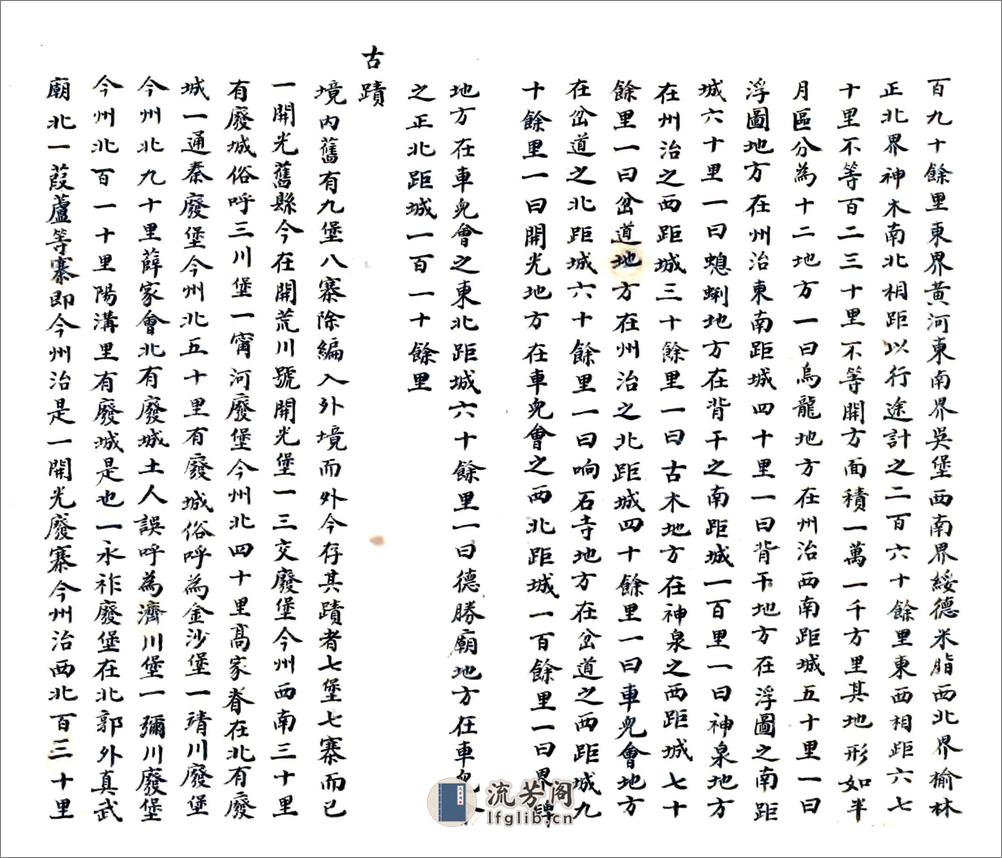 百九十餘里東界黃河東南界吳堡西南界綏德米脂西北界榆林
正北界神木南北相距以行途計之二百六十餘里東西相距六七
十里不等百二三十里不等開方面積一萬一千方里其地形如半
月區分為十二地方一曰烏龍地方在州治西南距城五十里一曰
浮圖地方在州治東南距城四十里一曰背干地方在浮圖之南距
城六十里一曰螅蜊地方在背干之南距城一百里一曰神泉地方
在州治之西距城三十餘里一曰古木地方在神泉之西距城七十
餘里一曰岔道地方在州治之北距城四十餘里一曰車皃會地方
在岔道之北距城六十餘里一曰响石寺地方在岔道之西距城九
十餘里一曰開光地方在車皃會之西北距城一百餘里一曰界牌
地方在車皃會之東北距城六十餘里一曰德勝廟地方在車皃
之正北距城一百一十餘里
古蹟
境內舊有九堡八寨除編入外境而外今存其蹟者七堡七寨而已
一開光舊縣今在開荒川號開光堡一三交廢堡今州西南三十里
有廢城俗呼三川堡一甯河廢堡今州北四十里高家眷在北有廢
城一通秦廢堡今州北五十里有廢城俗呼為金沙堡一靖川廢堡
今州北九十里薛家會北有廢城土人誤呼為濟川堡一彌川廢堡
今州北百一十里陽溝里有廢城是也一永祚廢堡在北郭外真武
廟北一葭蘆等寨即今州治是一開光廢寨今州治西北百三十里
流芳阁
lfglib.cn